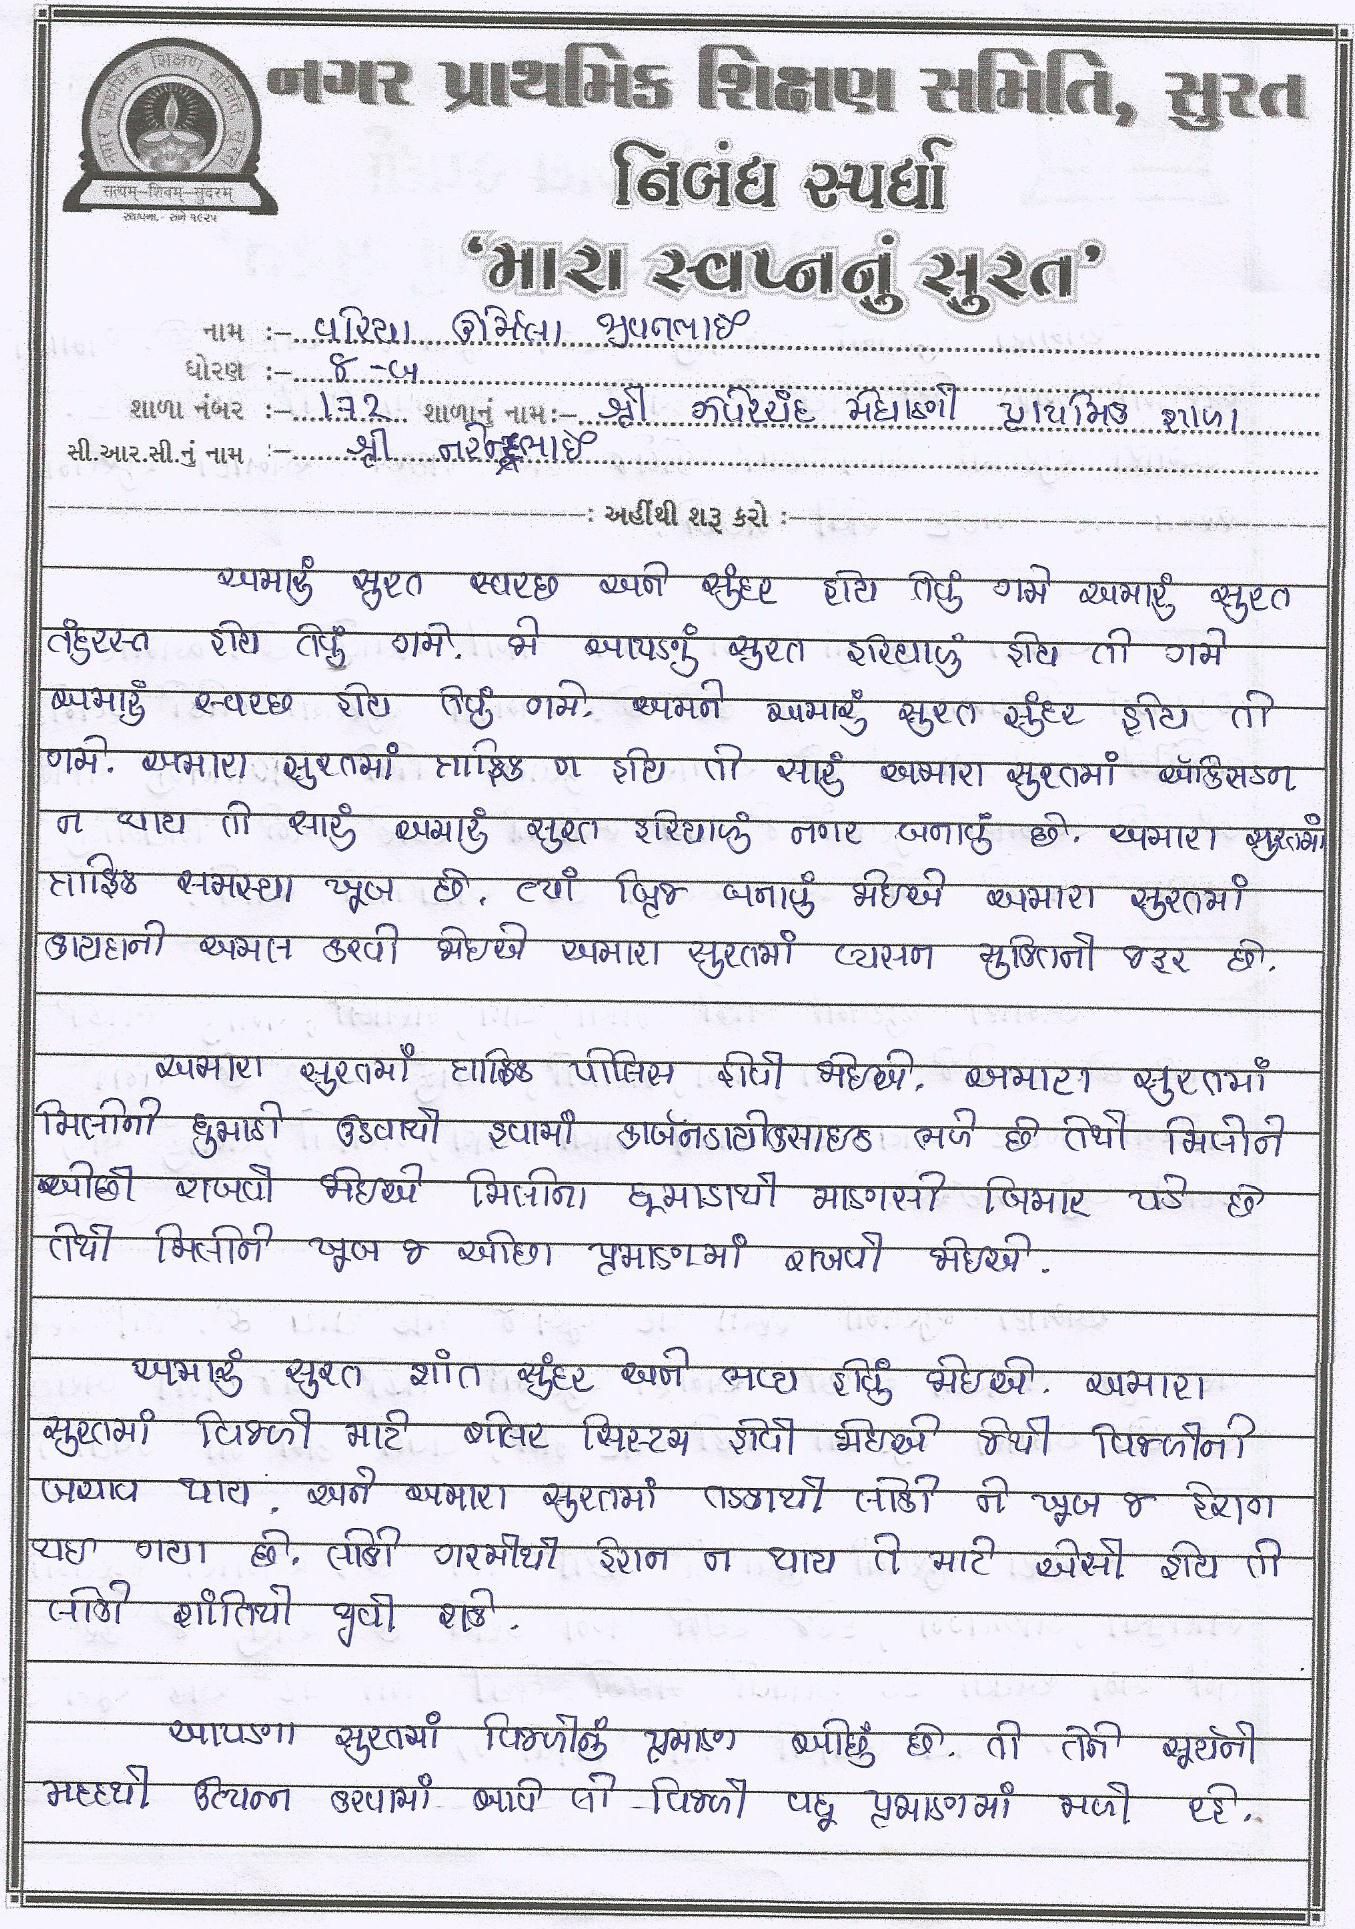 નગર પ્રાથમિક શિક્ષણ સમિતિ, સુરત
નગર પ્રાથમિક શિક્ષણ સમિતિ સુરત
સત્યમ્-શિવમ્-સુંદરમ્
સ્થાપના.- સને ૧૯૨૫
નિબંધ સ્પર્ધા
‘મારા સ્વપ્નનું સુરત’
નામ :- વરિયા ઊર્મિલા જીવનભાઈ
ધોરણ :- ૪ -બ
શાળા નંબર :- 172 શાળાનું નામ:- શ્રી ઝવેરચંદ મેઘાણી પ્રાથમિક શાળા
સી.આર.સી.નું નામ :- શ્રી નરેન્દ્રભાઈ
: અહીંથી શરૂ કરો :-
અમારું સુરત સ્વરછ અને સુંદર હોય તેવું ગમે અમારું સુરત
તંદુરસ્ત હોય તેવું ગમે. જો આપડનું સુરત હરિયાળું હોય તો ગમે
અમારું સ્વરછ હોય તેવું ગમે. અમને અમારું સુરત સુંદર હોય તો
ગમે. અમારા સુરતમાં ટ્રાફિક ન હોય તો સારું અમારા સુરતમાં ઍકિસડન
ન થાય તો સારું અમારું સુરત હરિયાળું નગર બનાવું છે. અમારા સુરતમાં
ટ્રાફિક સમસ્યા ખૂબ છે. ત્યાં બ્રિજ બનાવું જોઇએ અમારા સુરતમાં
કાયદાનો અમલ કરવો જોઇએ અમારા સુરતમાં વ્યસન મુકિતની જરૂર છે.
અમારા સુરતમાં ટ્રાફિક પોલિસ હોવી જોઇએ. અમારા સુરતમાં
મિલોનો ધુમાડો ઉડવાથી હવામાં કાર્બનડાયોકસાઇડ ભળે છે તેથી મિલોને
ઓછી રાખવી જોઇએ મિલોના ધૂમાડાથી માણસો બિમાર પડે છે
તેથી મિલોને ખૂબ જ ઓછા પ્રમાણમાં રાખવી જોઇએ.
અમારું સુરત શાંત સુંદર અને ભવ્ય હોવું જોઇએ. અમારા
સુરતમાં વિજળી માટે સોલર સિસ્ટમ હોવી જોઇએ જેથી વિજળીનો
બચાવ થાય. અને અમારા સુરતમાં તડકાથી લોકો ને ખૂબ જ હેરાન
થઇ ગયા છે. લોકો ગરમીથી હેરાન ન થાય તે માટે એસી હોય તો
લોકો શાંતિથી જીવી શકે.
આપણા સુરતમાં વિજળીનું પ્રમાણ ઓછું છે. તો તેને સૂર્યની
મદદથી ઉત્પન્ન કરવામાં આવે તો વિજળી વધુ પ્રમાણમાં મળી રહે.